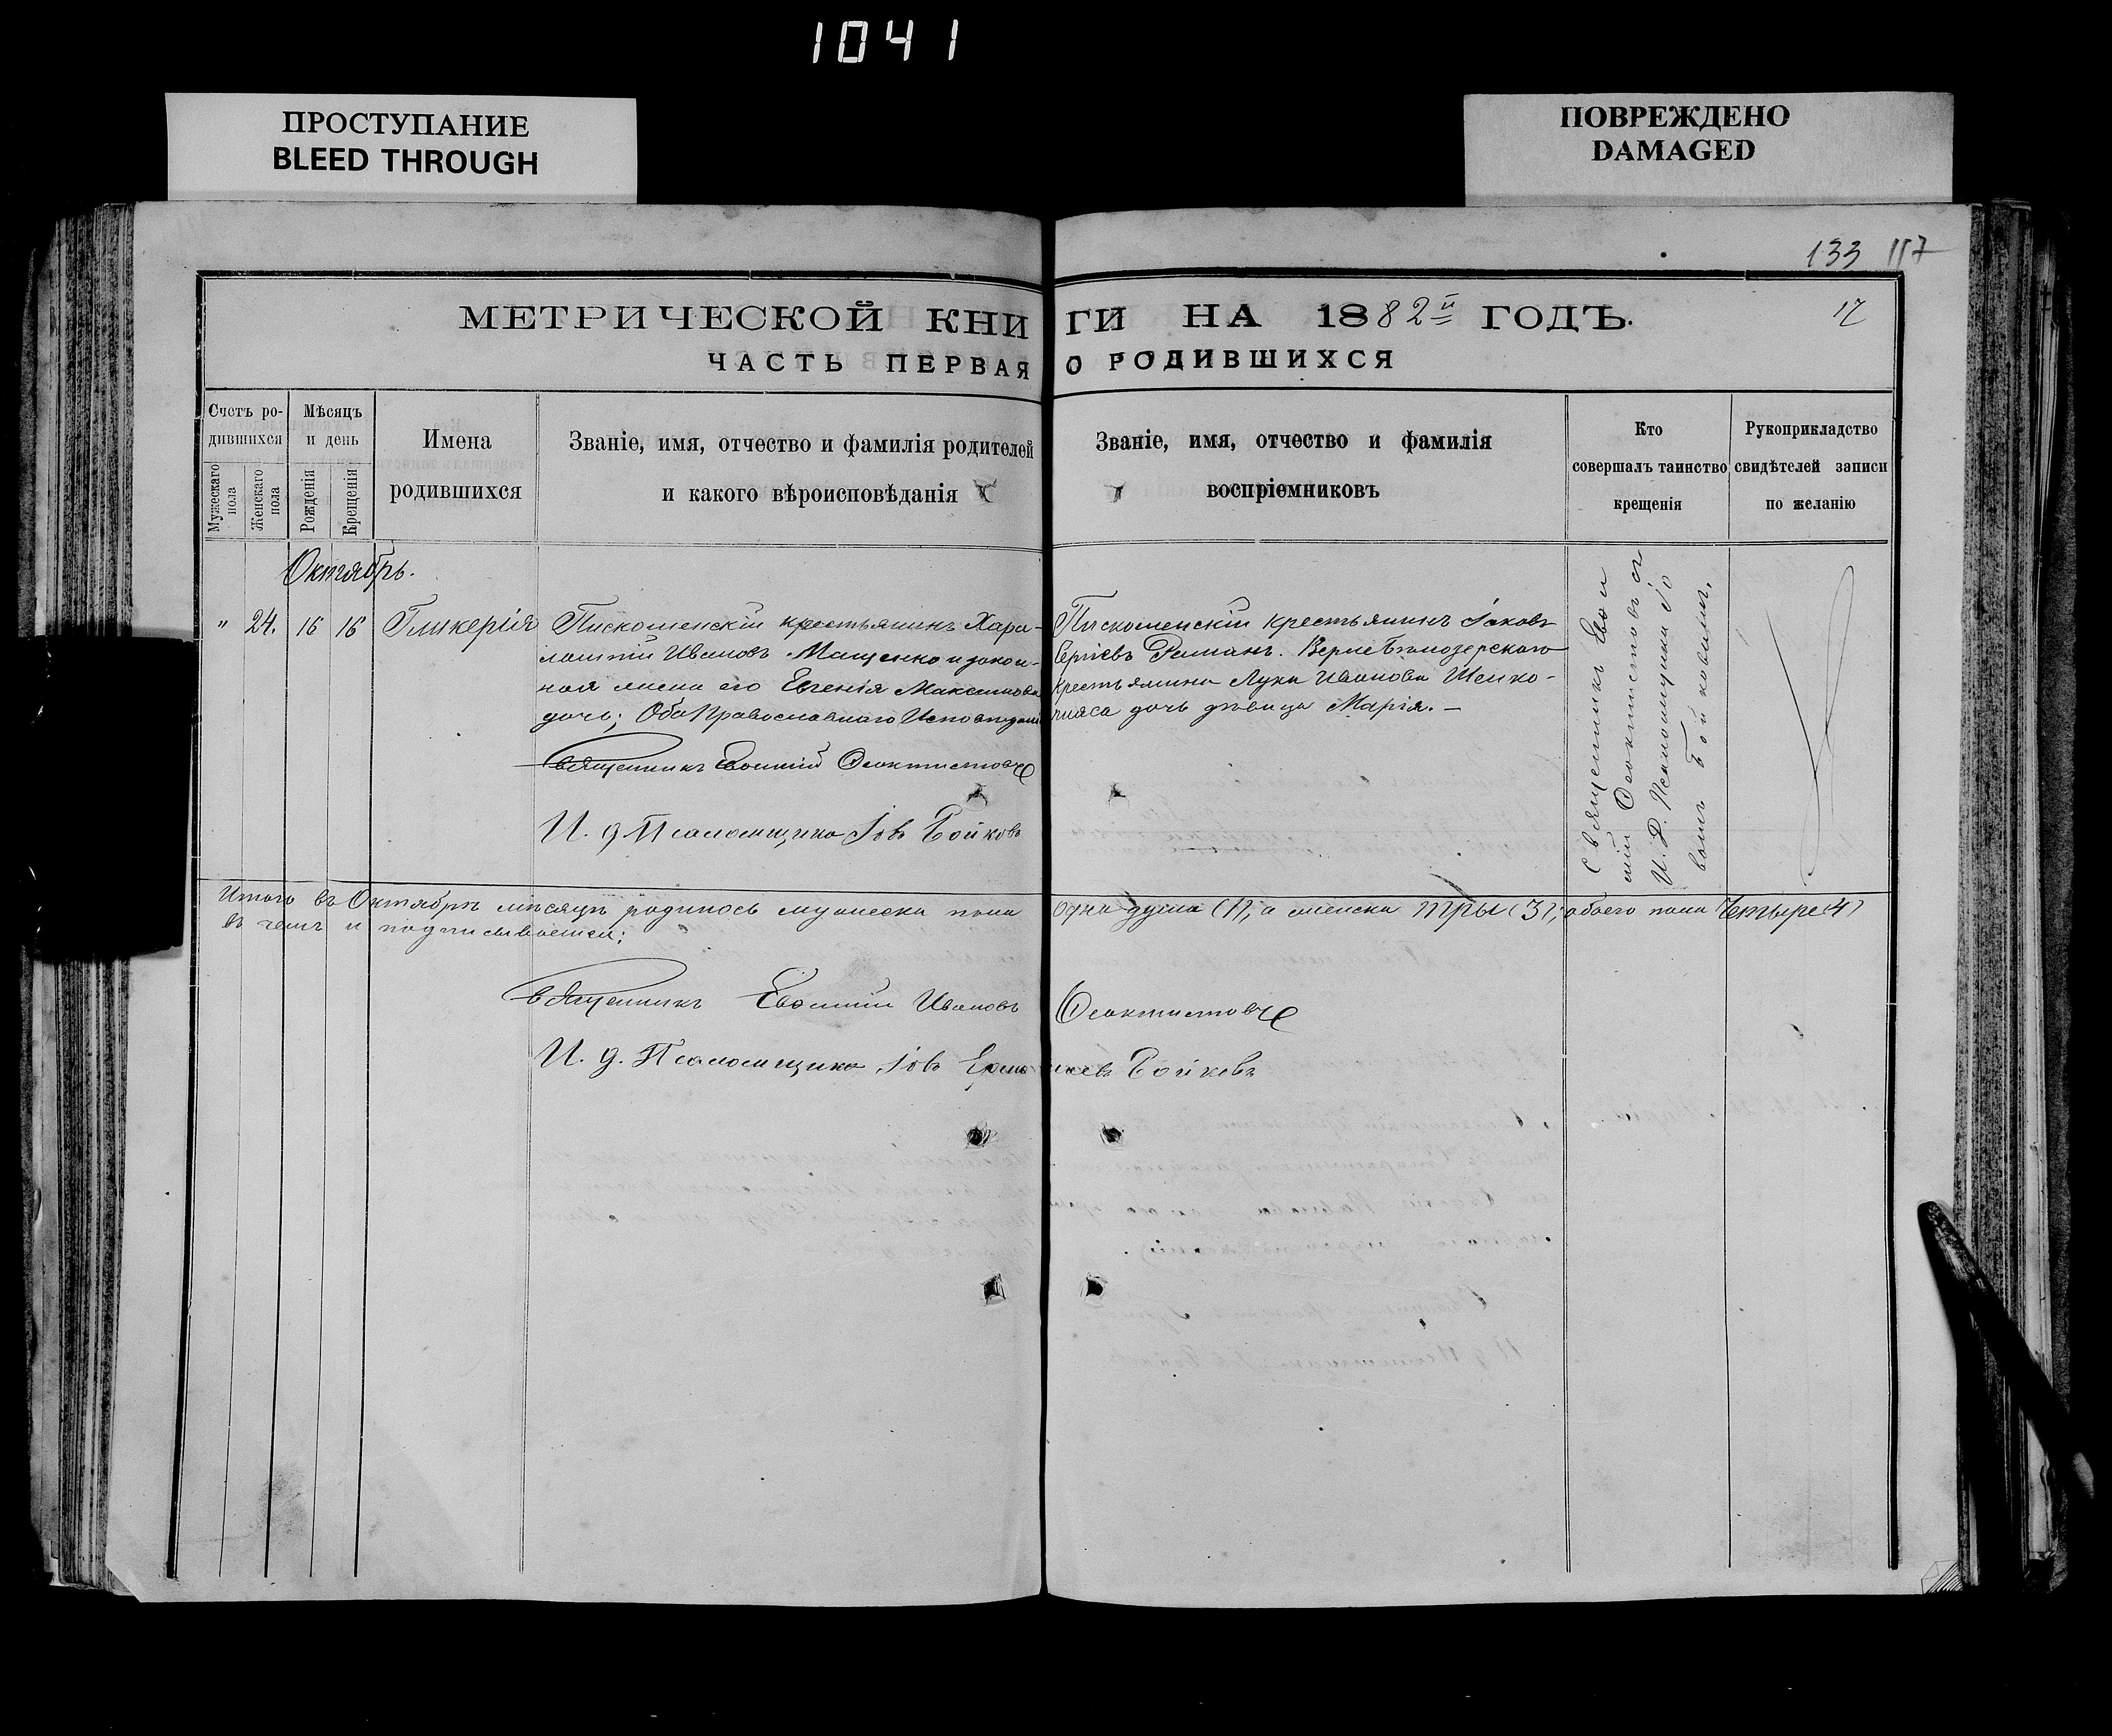 1041
ПРОСТУПАНИЕ
BLEED THROUGH
ПОВРЕЖДЕНО
DAMAGED
133 117
МЕТРИЧЕСКОЙ КНИГИ НА 1882й ГОДЪ.
17
ЧАСТЬ ПЕРВАЯ О РОДИВШИХСЯ
Счетъ ро-
дившихся
Мужескаго
пола
Женскаго
пола
Мѣсяцъ
и день
Рожденія
Крещенія
Имена
родившихся
Званіе, имя, отчество и фамилія родителей
и какого вѣроисповѣданія
Званіе, имя, отчество и фамилія
воспріемниковъ
Кто
совершалъ таинство
крещенія
Рукоприкладство
свидѣтелей записи
по желанію
Октябрь.
" 24. 16 16 Гликерія
Пискошенскій крестьянинъ Хара-
лампій Ивановъ Мащенко и закон-
ная жена его Евгенія Максимова
дочь; Оба Православнаго Исповѣданія
Священникъ Евфимій Феоктистовъ
И. д. Псаломщика Іовъ Бойковъ
Пискошенскій крестьянинъ Іаковъ
Сергіевъ Романъ. Верне Бѣлозерского
крестьянина Луки Иванова
дочь дѣвица Марія. —
Священникъ Евфи
мій Феоктистовъ съ
И. Д. Псаломщика Іо
вомъ Бойковымъ.
Итого въ Октябрѣ мѣсяцѣ родилось мужеска пола одна душа (1), а женска три (3); обоего пола Четыре (4)
въ чемъ и подписываемся:
Священникъ Евфимій Ивановъ Феоктистовъ
И. д. Псаломщика Іовъ Бойковъ